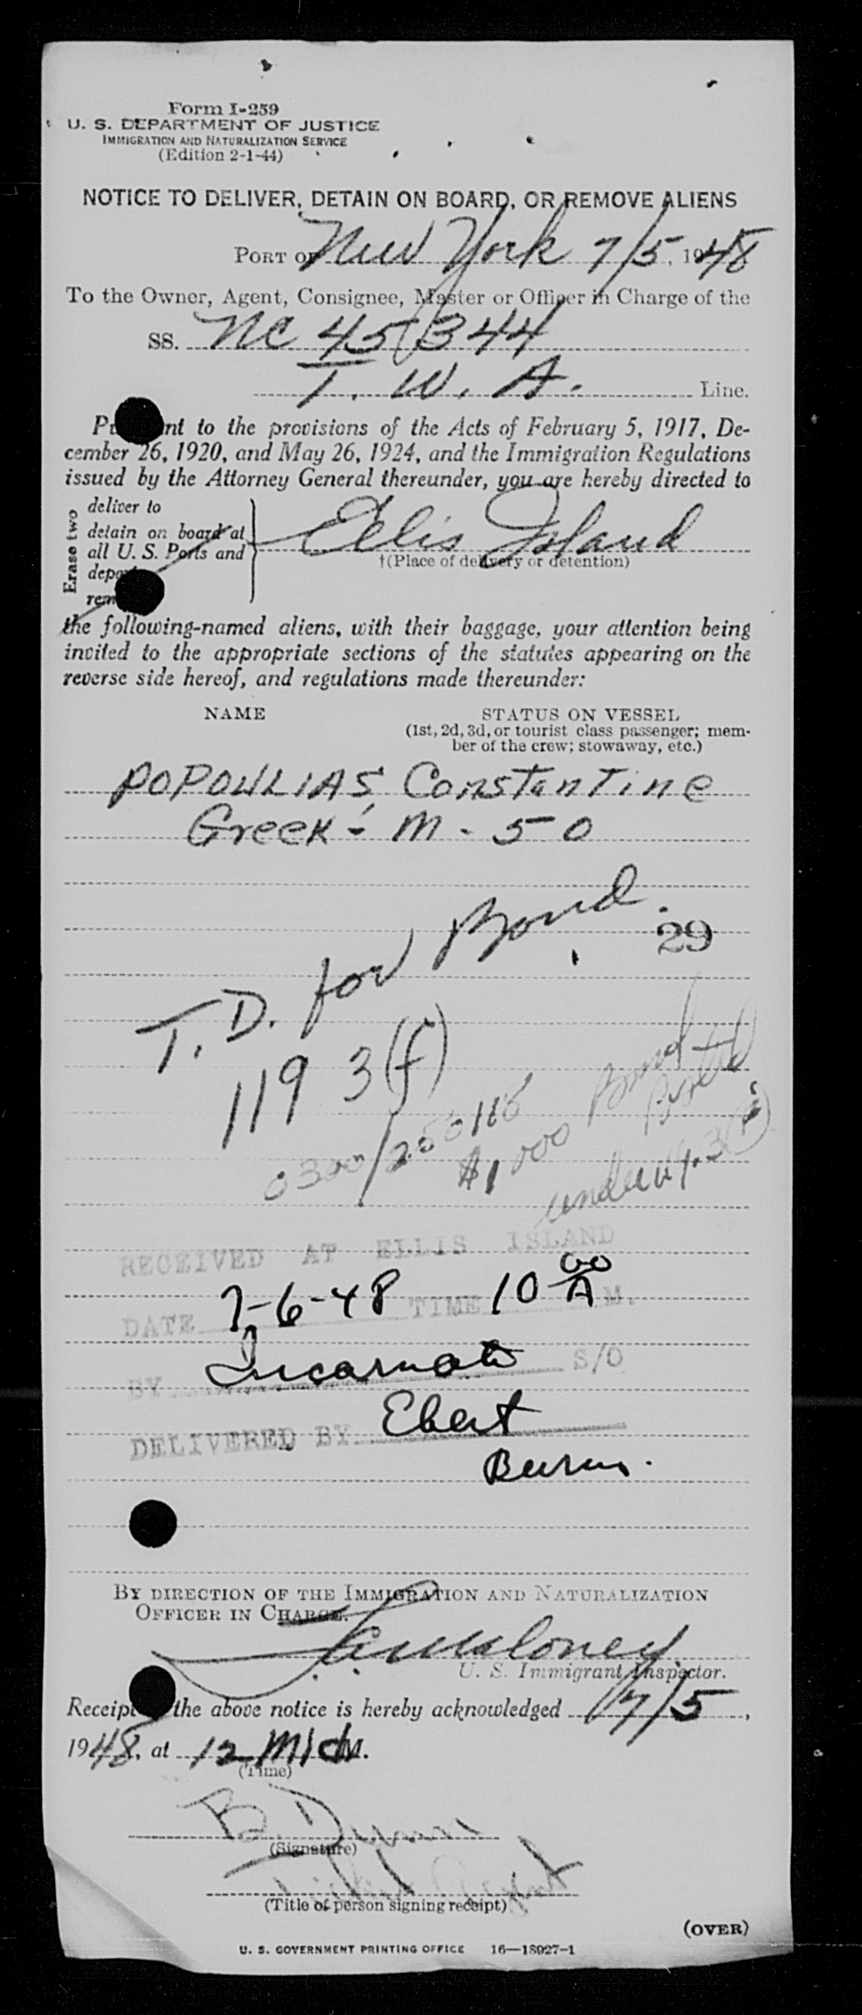 Form I-259
U. S. DEPARTMENT OF JUSTICE
IMMIGRATION AND NATURALIZATION SERVICE
(Edition 2-1-44)
NOTICE TO DELIVER, DETAIN ON BOARD, OR REMOVE ALIENS
PORT OF New York 7/5, 1948
To the Owner, Agent, Consignee, Master or Officer in Charge of the
SS. NC 45344
T. W. A. Line.
nt to the provisions of the Acts of February 5, 1917, De-
cember 26, 1920, and May 26, 1924, and the Immigration Regulations
issued by the Attorney General thereunder, you are hereby directed to
Erase two
deliver to
detain on board at
all U. S. Ports and
Ellis Island
†(Place of delivery or detention)
the following-named aliens, with their baggage, your attention being
invited to the appropriate sections of the statutes appearing on the
reverse side hereof, and regulations made thereunder:
NAME STATUS ON VESSEL
(1st, 2d, 3d, or tourist class passenger; mem-
ber of the crew; stowaway, etc.)
POPOULIAS, Constantine
Greek - M - 50
T. D. for Bond.
29
119 3(f)
Bond
Posted
0300/250118
$1000
under 119.3(f)
RECEIVED AT ELLIS ISLAND
DATE 7-6-48 TIME 10 00 A M.
BY Incarnato S/O
DELIVERED BY Ebert
Burns.
BY DIRECTION OF THE IMMIGRATION AND NATURALIZATION
OFFICER IN CHARGE.
U. S. Immigrant Inspector.
Receipt the above notice is hereby acknowledged 7/5,
1948, at 12 Mid M.
(Time)
B.
(Signature)
(Title of person signing receipt)
(OVER)
U. S. GOVERNMENT PRINTING OFFICE 16—18027-1